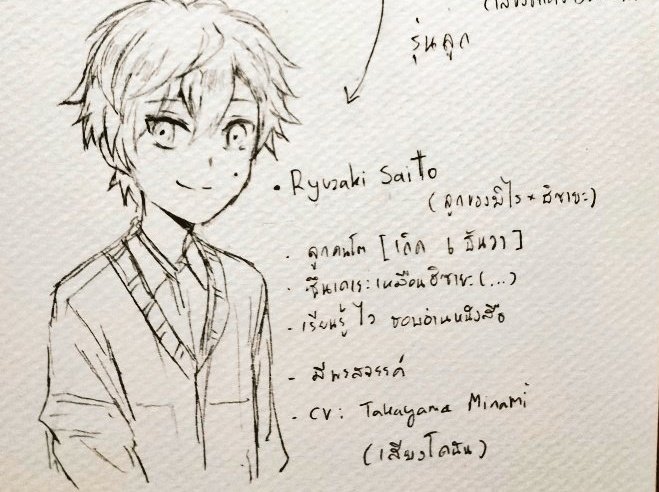 รุ่นลูก
• Ryuzaki Saito
(ลูกของมิไร + ฮิซายะ)
- ลูกคนโต [เกิด 6 ธันวา]
- ซึนเดเระเหมือนฮิซายะ (...)
- เรียนรู้ไว ชอบอ่านหนังสือ
- มีพรสวรรค์
- CV: Takayama Minami
(เสียงโคนัน)